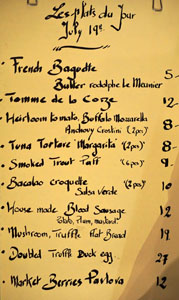 Les plats du Jour
July 19th
• French Baguette 5-
Butter rodolphe Le Meunier
• Tomme de la Corze 12-
• Heirloom tomato, Buffalo Mozzarella 8-
Anchovy Crostini (2pcs)
• Tuna Tartare Margarita (2pcs) 8-
• Smoked Trout Taff (6pcs) 9-
• Bacalao croquette (2pcs) 10
Salsa verde
• House made Blood Sausage 12
mustard.
• Mushroom, Truffle Flat Bread 19
• Doubled Truffle Duck egg 27
• Market Berries Pavlova 12